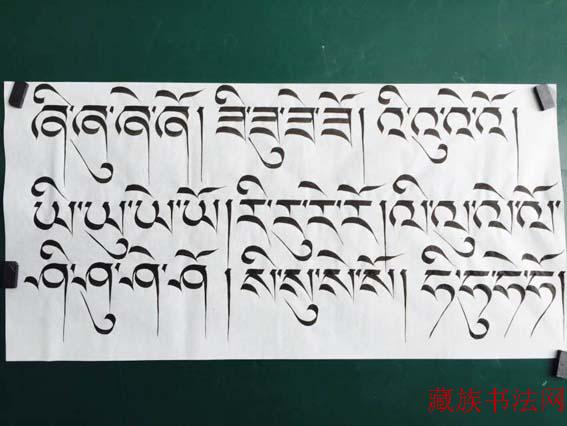 ཞི་ཞུ་ཞེ་ཞོ། ཟི་ཟུ་ཟེ་ཟོ། འི་འུ་འེ་འོ།
ཡི་ཡུ་ཡེ་ཡོ། རི་རུ་རེ་རོ། ལི་ལུ་ལེ་ལོ།
ཤི་ཤུ་ཤེ་ཤོ། སི་སུ་སེ་སོ། ཧི་ཧུ་ཧེ་ཧོ།
藏族书法网